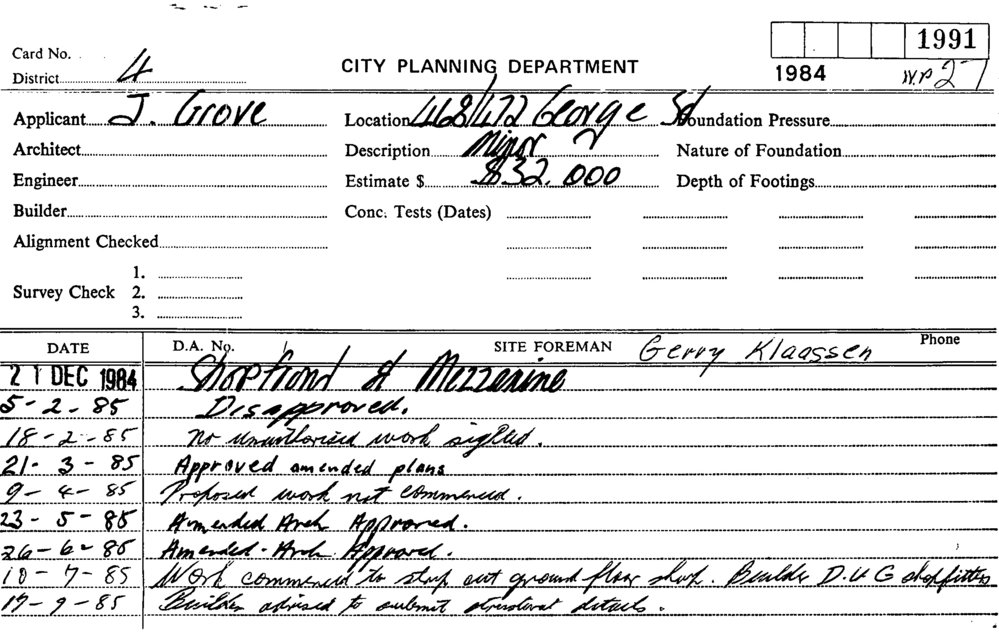 1991
Card No.
District 4
CITY PLANNING DEPARTMENT
1984
W.P 27
Applicant J. Grove
Location 468/472 George St
Foundation Pressure
Architect
Description Minor
Nature of Foundation
Engineer
Estimate $ $32.000
Depth of Footings
Builder
Conc. Tests (Dates)
Alignment Checked
1.
Survey Check 2.
3.
DATE D.A. No. SITE FOREMAN Gerry Klaassen Phone
21 DEC 1984 Shopfront & Mezzanine
5-2-85 Disapproved.
18-2-85 No unauthorised work sighted.
21-3-85 Approved amended plans
9-4-85 Proposed work not commenced.
23-5-85 Amended Arch Approved.
26-6-85 Amended-Arch Approved.
10-7-85 Work commenced to strip out ground floor shop. Builder D.U G shopfitters
17-9-85 Builder advised to submit structural details.